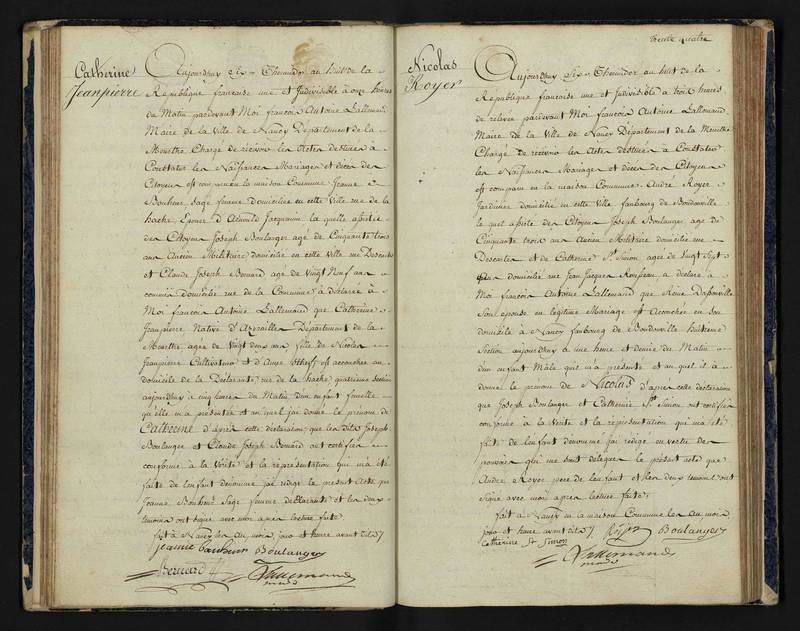 Catherine
Jeanpierre
Aujourdhuy Six Thermidor an huit de la
République française une et Indivisible à onze heures
du Matin pardevant Moi françois Antoine Lallemand
Maire de la Ville de Nancy Département de la
Meurthe Chargé de recevoir les Actes destinés à
Constater les Naissances Mariages et décès des
Citoyens est comparue en la maison Commune Jeanne
Bonheur Sage femme Domiciliée en cette Ville rue de la
hache Epouse d'Arnould Jacquemin la quelle assistée
des Citoyens Joseph Boulanger agé de Cinquante trois
ans Ancien Militaire domicilié en cette Ville rue Descartes
et Claude Joseph Bernard agé de Vingt Neuf ans
commis domicilié rue de la Commune a déclaré à
Moi françois Antoine Lallemand que Catherine
Jeanpierre Native d' Département de la
Meurthe agée de Vingt deux ans fille de Nicolas
Jeanpierre Cultivateur et d'Anne est accouchée au
domicile de la Déclarante rue de la hache quatrieme Section
aujourdhuy à cinq heures du Matin d'un enfant femelle
qu'elle m'a présenté et au quel j'ai donné le prénom de
Catherine d'après cette déclaration que les dits Joseph
Boulanger et Claude Joseph Bernard ont certifiée
conforme à la Vérité et la représentation qui m'a été
faite de l'enfant dénommé j'ai rédigé le présent Acte que
Jeanne Bonheur Sage femme déclarante et les deux
témoins ont signé avec moi après lecture faite
fait à Nancy les an, mois, jour et heure avant dits
Jeanne bonheur Boulanger
Bernard Lallemand
maire
trente quatre
Nicolas
Royer
Aujourdhuy Six Thermidor an huit de la
République française une et Indivisible à trois heures
de relevée pardevant Moi françois Antoine Lallemand
Maire de la Ville de Nancy Département de la Meurthe
Chargé de recevoir les Actes destinés à Constater
les Naissances Mariages et décès des Citoyens
est comparu en la maison Commune André Royer
Jardinier domicilié en cette Ville faubourg de Boudonville
le quel assisté des Citoyens Joseph Boulanger agé de
Cinquante trois ans Ancien Militaire domicilié rue
Descartes et de Catherine St Simon agée de Vingt Sept
ans domiciliée rue Jean Jacques Rousseau a déclaré à
Moi françois Antoine Lallemand que Reine
Son épouse en légitime Mariage est Accouchée en son
domicile à Nancy faubourg de Boudonville huitieme
Section aujourdhuy à une heure et demie du Matin
d'un enfant Mâle qu'il m'a présenté et au quel il a
donné le prénom de Nicolas d'après cette déclaration
que Joseph Boulanger et Catherine St Simon ont certifiée
conforme à la Vérité et la représentation qui m'a été
faite de l'enfant dénommé j'ai rédigé en vertu des
pouvoirs qui me sont délégués le présent acte que
André Royer père de l'enfant et les deux témoins ont
signé avec moi après lecture faite
fait à Nancy en la maison Commune les an mois
jour et heure avant dits Boulanger
Catherine St Simon
Lallemand
maire